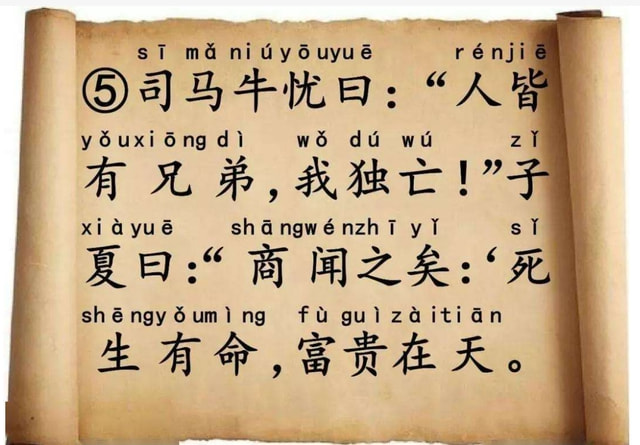 sī mǎ niú yōu yuē rén jiē
⑤司马牛忧曰：“人皆
yǒu xiōng dì wǒ dú wú zǐ
有兄弟,我独亡!”子
xià yuē shāng wén zhī yǐ sǐ
夏曰:“商闻之矣:‘死
shēng yǒu mìng fù guì zài tiān
生有命,富贵在天。